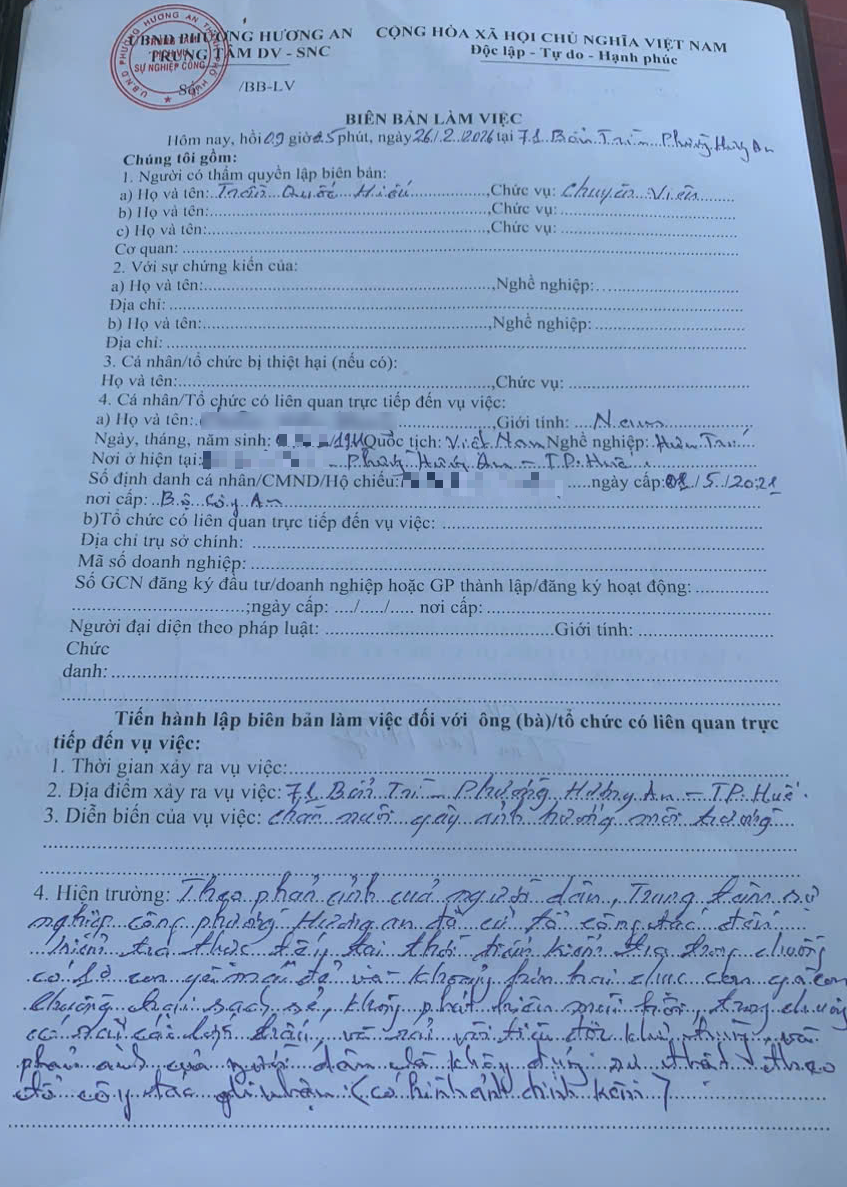 UBND PHƯỜNG HƯƠNG AN
TRUNG TÂM DV - SNC
CỘNG HÒA XÃ HỘI CHỦ NGHĨA VIỆT NAM
Độc lập - Tự do - Hạnh phúc
SỰ NGHIỆP CÔNG
Số: /BB-LV
BIÊN BẢN LÀM VIỆC
Hôm nay, hồi 09 giờ 25 phút, ngày 26/2/2026 tại 71 Bán Trìn Phường Hương An
Chúng tôi gồm:
1. Người có thẩm quyền lập biên bản:
a) Họ và tên: Trần Quốc Hiếu, Chức vụ: Chuyên Viên
b) Họ và tên:, Chức vụ:
c) Họ và tên:, Chức vụ:
Cơ quan:
2. Với sự chứng kiến của:
a) Họ và tên:, Nghề nghiệp:
Địa chỉ:
b) Họ và tên:, Nghề nghiệp:
Địa chỉ:
3. Cá nhân/tổ chức bị thiệt hại (nếu có):
Họ và tên:, Chức vụ:
4. Cá nhân/Tổ chức có liên quan trực tiếp đến vụ việc:
a) Họ và tên:, Giới tính: Nam
Ngày, tháng, năm sinh: Quốc tịch: Việt Nam Nghề nghiệp: Hưu Trí
Nơi ở hiện tại: Phường Hương An - T.P. Huế
Số định danh cá nhân/CMND/Hộ chiếu: ngày cấp: /5/2021
nơi cấp: Bộ Công An
b)Tổ chức có liên quan trực tiếp đến vụ việc:
Địa chỉ trụ sở chính:
Mã số doanh nghiệp:
Số GCN đăng ký đầu tư/doanh nghiệp hoặc GP thành lập/đăng ký hoạt động:
;ngày cấp: ..../...../..... nơi cấp:
Người đại diện theo pháp luật: Giới tính:
Chức
danh:
Tiến hành lập biên bản làm việc đối với ông (bà)/tổ chức có liên quan trực
tiếp đến vụ việc:
1. Thời gian xảy ra vụ việc:
2. Địa điểm xảy ra vụ việc: 71 Bán Trì - Phường Hương An - TP. Huế.
3. Diễn biến của vụ việc: chăn nuôi gây ảnh hưởng môi trường
4. Hiện trường: Theo phản ánh của người dân, Trung tâm sự
nghiệp công phường Hương An đã cử tổ công tác đến
kiểm tra thực tế, tại thời điểm kiểm tra trong chuồng
có 10 con gà mái đẻ và khoảng trên hai chục con gà con
chuồng trại sạch sẽ, không phát hiện mùi hôi, trong chuồng
có rải trấu, và rải vôi tiêu độc khử trùng, việc
phản ánh của người dân là không đúng sự thật theo
tổ công tác ghi nhận (có hình ảnh đính kèm)